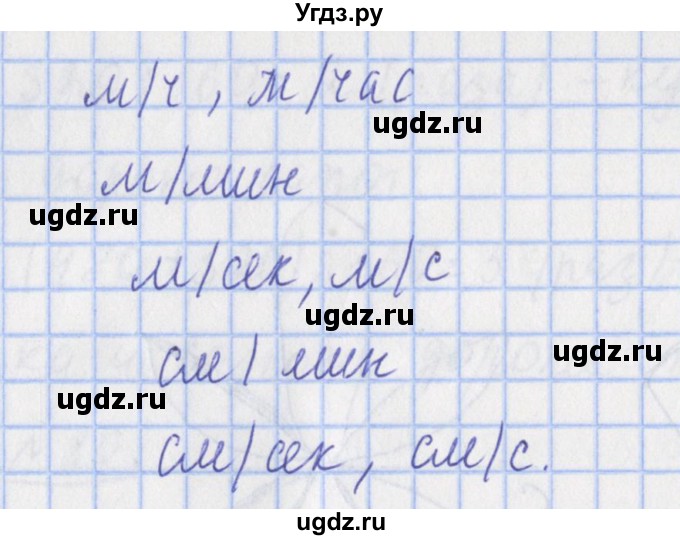 Угдз.ру
м/ч, м/час
ugdz.ru
м/мин
ugdz.ru
м/сек, м/с
ugdz.ru
ugdz.ru
см/мин
ugdz.ru
см/сек, см/с.
ugdz.ru
ugdz.ru